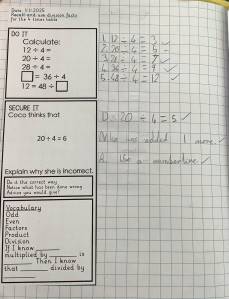 Date: 1.11.2025
Recall and use division facts
for the 4 times tables
DO IT
Calculate:
12 ÷ 4 =
20 ÷ 4 =
28 ÷ 4 =
= 36 ÷ 4
12 = 48 ÷
1. 12 ÷ 4 = 3 ✓
2. 20 ÷ 4 = 5 ✓
3. 28 ÷ 4 = 7 ✓
4. 36 ÷ 4 = 9 ✓
5. 48 ÷ 4 = 12 ✓
SECURE IT
Coco thinks that
20 ÷ 4 = 6
Explain why she is incorrect.
Do it the correct way
Notice what has been done wrong
Advice you would give?
D 20 ÷ 4 = 5 ✓
was added 1 more. ✓
A. Use a numberline ✓
Vocabulary
Odd
Even
Factors
Product
Division
If I know ______
multiplied by ______ is
______. Then I know
that ______ divided by
______